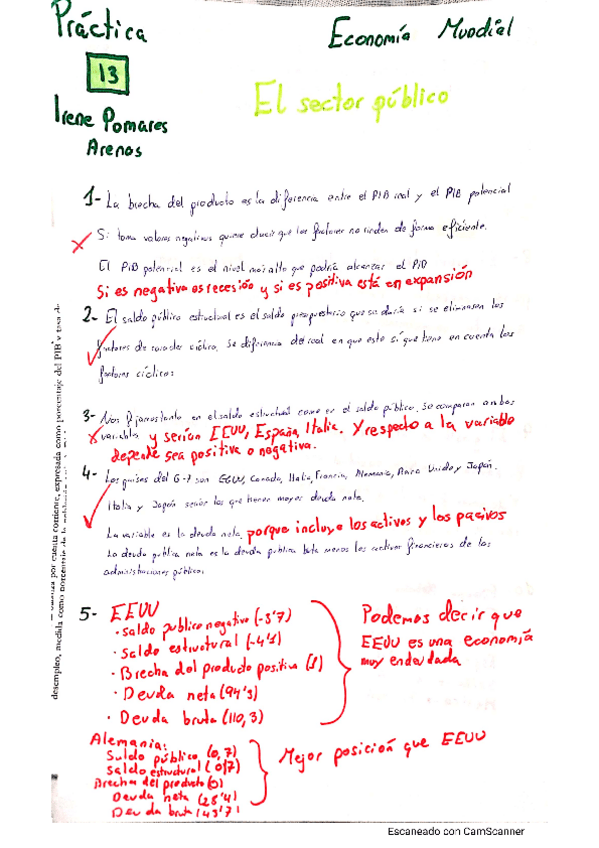 Práctica
Economía Mundial
13
El sector público
Irene Pomares
Arenas
1- La brecha del producto es la diferencia entre el PIB real y el PIB potencial
Si toma valores negativos quiere decir que los factores no rinden de forma eficiente.
El PIB potencial es el nivel más alto que podría alcanzar el PIB
Si es negativa es recesión y si es positiva está en expansión
2- El saldo público estructural es el saldo presupuestario que se daría si se eliminasen los
factores de carácter cíclico. Se diferencia del real en que este sí que tiene en cuenta los
factores cíclicos
3- Nos fijamos tanto en el saldo estructural como en el saldo público. Se comparan ambas
variables y serían EEUU, España, Italia. Y respecto a la variable
depende sea positiva o negativa.
4- Los países del G-7 son EEUU, Canada, Italia, Francia, Alemania, Reino Unido y Japón.
Italia y Japón serían los que tienen mayor deuda neta.
La variable es la deuda neta. porque incluye los activos y los pasivos
La deuda pública neta es la deuda pública bruta menos los activos financieros de las
administraciones públicas.
5- EEUU
· Saldo público negativo (-3'7)
· Saldo estructural (-4'1)
· Brecha del producto positiva (1)
· Deuda neta (94'3)
· Deuda bruta (110,3)
Podemos decir que
EEUU es una economía
muy endeudada
Alemania:
Saldo público (0,7)
Saldo estructural (0,7)
Brecha del producto (0)
Deuda neta (28'4)
Deuda bruta (43'7)
Mejor posición que EEUU
por cuenta corriente, expresada como porcentaje del PIB y tasa de
desempleo, medida como porcentaje de la
Escaneado con CamScanner